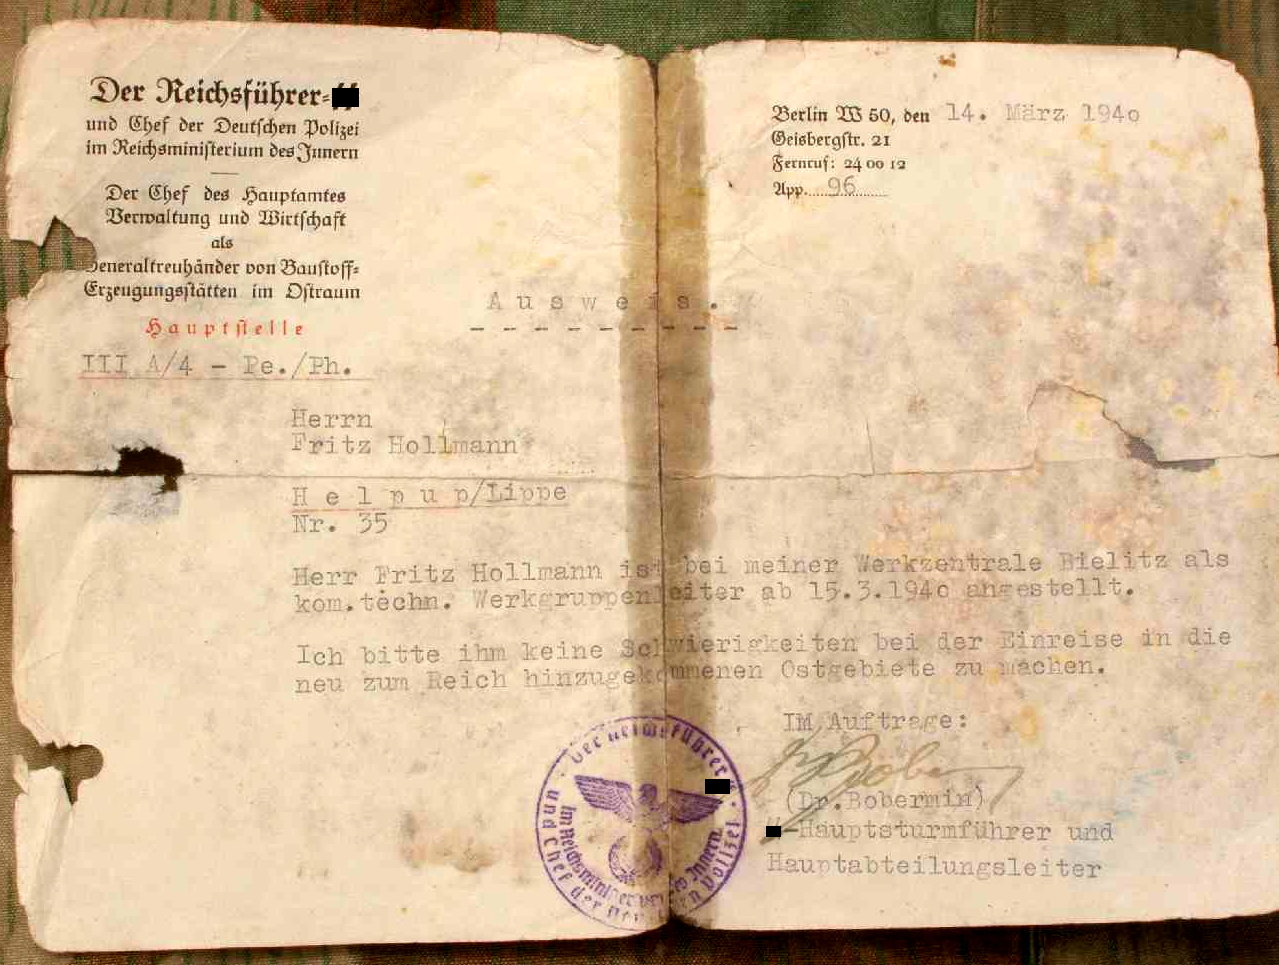 Der Reichsführer-
und Chef der Deutschen Polizei
im Reichsministerium des Innern
Der Chef des Hauptamtes
Verwaltung und Wirtschaft
als
Generaltreuhänder von Baustoff-
Erzeugungsstätten im Ostraum
Hauptstelle
III A/4 - Pe./Ph.
Berlin W 50, den 14. März 1940
Geisbergstr. 21
Fernruf: 24 00 12
App. 96
Ausweis.
Herrn
Fritz Hollmann
Helpup/Lippe
Nr. 35
Herr Fritz Hollmann ist bei meiner Werkzentrale Bielitz als
kom.techn. Werkgruppenleiter ab 15.3.1940 angestellt.
Ich bitte ihm keine Schwierigkeiten bei der Einreise in die
neu zum Reich hinzugekommenen Ostgebiete zu machen.
IM Auftrage:
(Dr.Bobermin)
-Hauptsturmführer und
Hauptabteilungsleiter
Der Reichsführer
und Chef der Polizei
Im Reichsminister Innern